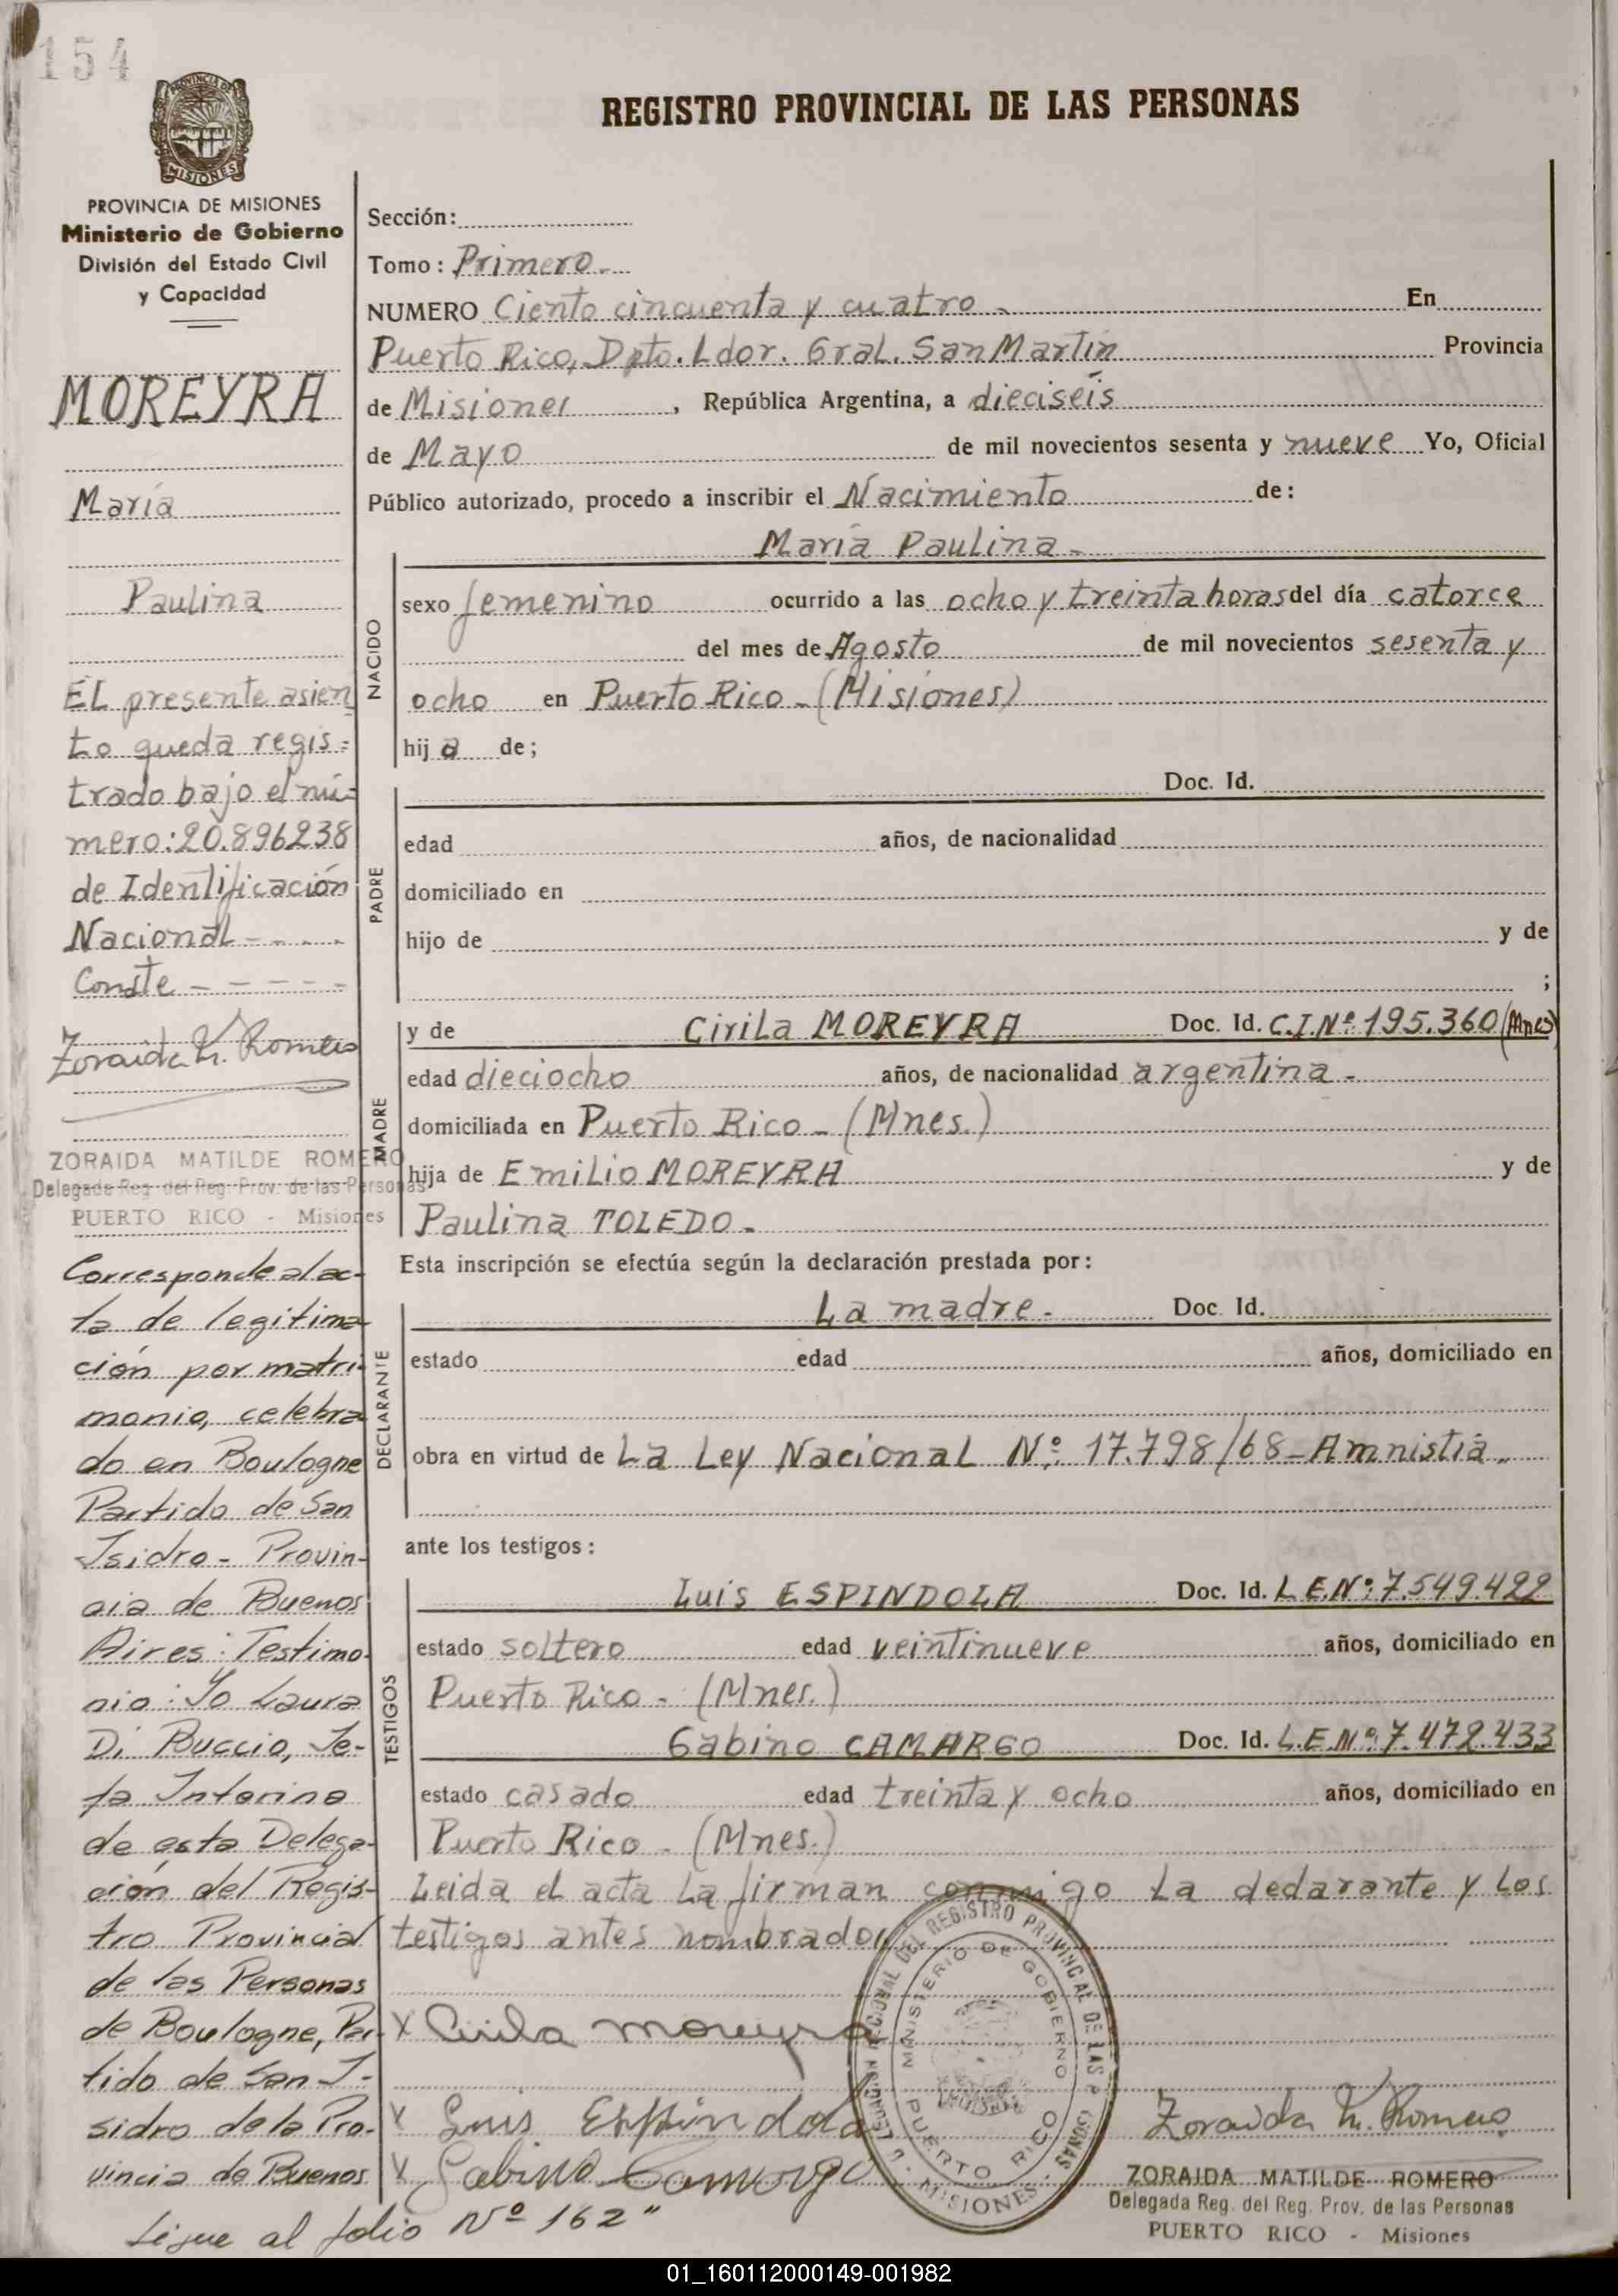 154
PROVINCIA DE MISIONES
MISIONES
PROVINCIA DE MISIONES
Ministerio de Gobierno
División del Estado Civil
y Capacidad
MOREYRA
María
Paulina
EL presente asien
to queda regis=
trado bajo el nú=
mero: 20.896238
de Identificación
Nacional - - - -
Conste - - - - -
Zoraida M. Romero
ZORAIDA MATILDE ROMERO
Delegada Reg. del Reg. Prov. de las Personas
PUERTO RICO - Misiones
Corresponde al ac-
ta de legitima
ción por matri-
monio, celebra
do en Boulogne
Partido de San
Isidro - Provin-
cia de Buenos
Aires: Testimo-
nio: Yo Laura
Di Buccio, Je-
fa Interina
de esta Delega-
ción del Regis-
tro Provincial
de las Personas
de Boulogne, Par-
tido de San I-
sidro de la Pro-
vincia de Buenos
Sigue al folio Nº 162"
REGISTRO PROVINCIAL DE LAS PERSONAS
Sección:
Tomo: Primero.-
NUMERO Ciento cincuenta y cuatro - En
Puerto Rico, Dpto. Ldor. Gral. San Martín Provincia
de Misiones, República Argentina, a dieciseis
de Mayo de mil novecientos sesenta y nueve Yo, Oficial
Público autorizado, procedo a inscribir el Nacimiento de:
María Paulina -
NACIDO
sexo femenino ocurrido a las ocho y treinta horas del día catorce
del mes de Agosto de mil novecientos sesenta y
ocho en Puerto Rico - (Misiones)
hija de;
PADRE
Doc. Id.
edad años, de nacionalidad
domiciliado en
hijo de y de
;
MADRE
y de Cirila MOREYRA Doc. Id. C.I.Nº 195.360 (Mnes)
edad dieciocho años, de nacionalidad argentina -
domiciliada en Puerto Rico - (Mnes.)
hija de Emilio MOREYRA y de
Paulina TOLEDO.-
Esta inscripción se efectúa según la declaración prestada por:
DECLARANTE
La madre.- Doc. Id.
estado edad años, domiciliado en
obra en virtud de La Ley Nacional Nº: 17.798/68 - Amnistía.-
ante los testigos:
TESTIGOS
Luis ESPINDOLA Doc. Id. L.E.Nº: 7.549.422
estado soltero edad veintinueve años, domiciliado en
Puerto Rico - (Mnes.)
Gabino CAMARGO Doc. Id. L.E.Nº: 7.472.433
estado casado edad treinta y ocho años, domiciliado en
Puerto Rico - (Mnes.)
Leida el acta la firman conmigo la declarante y los
testigos antes nombrados
X Cirila moreyra
X Luis Espindola
X Gabino Camargo
REGIONAL DEL REGISTRO PROVINCIAL DE LAS PERSONAS
MINISTERIO DE GOBIERNO
PUERTO RICO
MISIONES
Zoraida M. Romero
ZORAIDA MATILDE ROMERO
Delegada Reg. del Reg. Prov. de las Personas
PUERTO RICO - Misiones
01_160112000149-001982